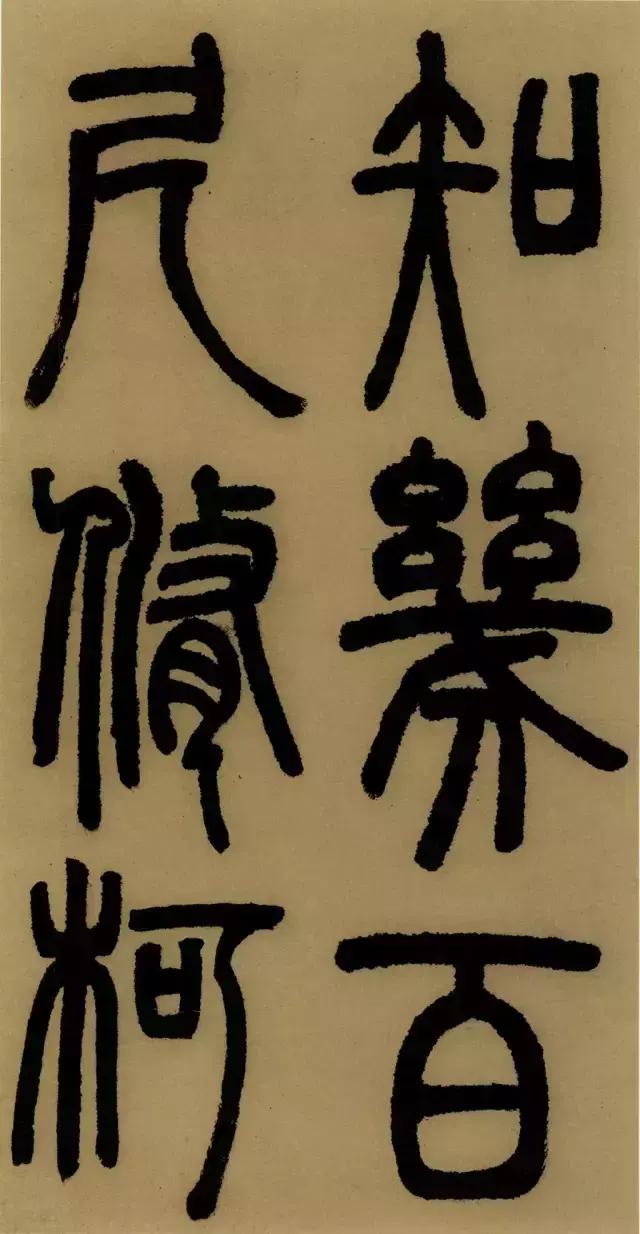 知幾百
尺脩柯